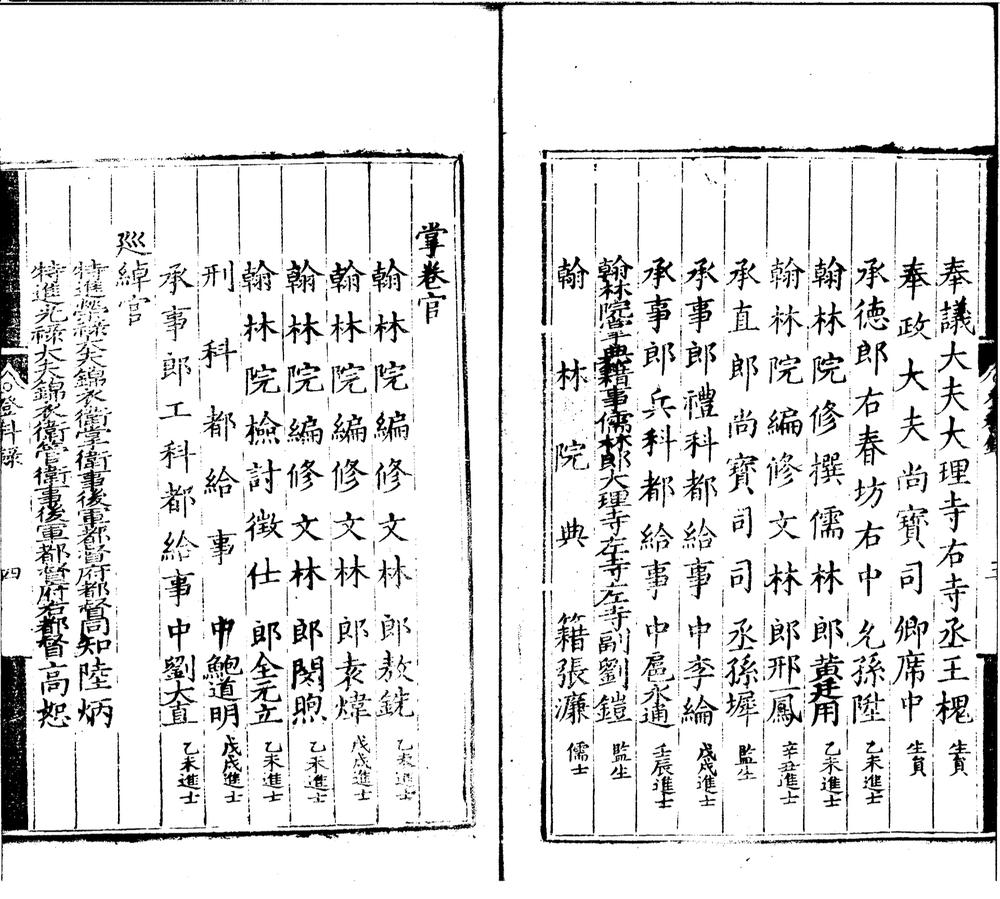 奉議大夫大理寺右寺丞王槐生員
奉政大夫尚寶司卿席中生員
承德郎右春坊右中允孫陞乙未進士
翰林院修撰儒林郎黃廷用乙未進士
翰林院編修文林郎邢一鳳辛丑進士
承直郎尚寶司司丞孫墀監生
承事郎禮科都給事中李綸戊戌進士
承事郎兵科都給事中扈永通壬辰進士
事儒林郎大理寺左寺左寺副劉鎧監生
翰林院典籍張濂儒士
掌卷官
翰林院編修文林郎敖銑乙未進士
翰林院編修文林郎袁煒戊戌進士
翰林院編修文林郎閔煦乙未進士
翰林院檢討徵仕郎全元立乙未進士
刑科都給事中鮑道明戊戌進士
承事郎工科都給事中劉大直乙未進士
巡綽官
特進光祿大夫錦衣衛掌衛事後軍都督府都督同知陸炳
特進光祿大夫錦衣衛管衛事後軍都督府右都督高恕
登科錄
四